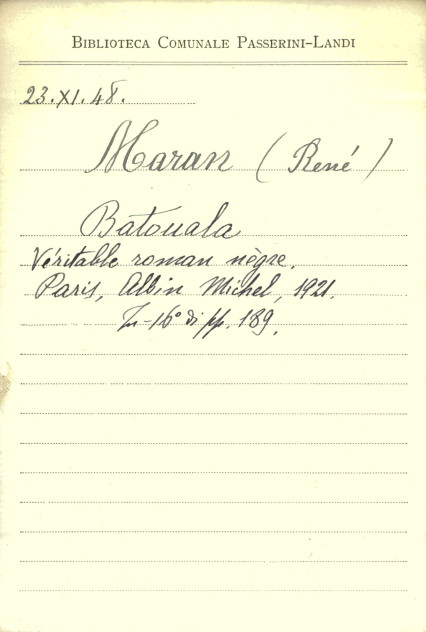 BIBLIOTECA COMUNALE PASSERINI-LANDI
23.XI.48.
Maran (René)
Batouala
Véritable roman nègre.
Paris, Albin Michel, 1921.
In-16° di pp. 189.